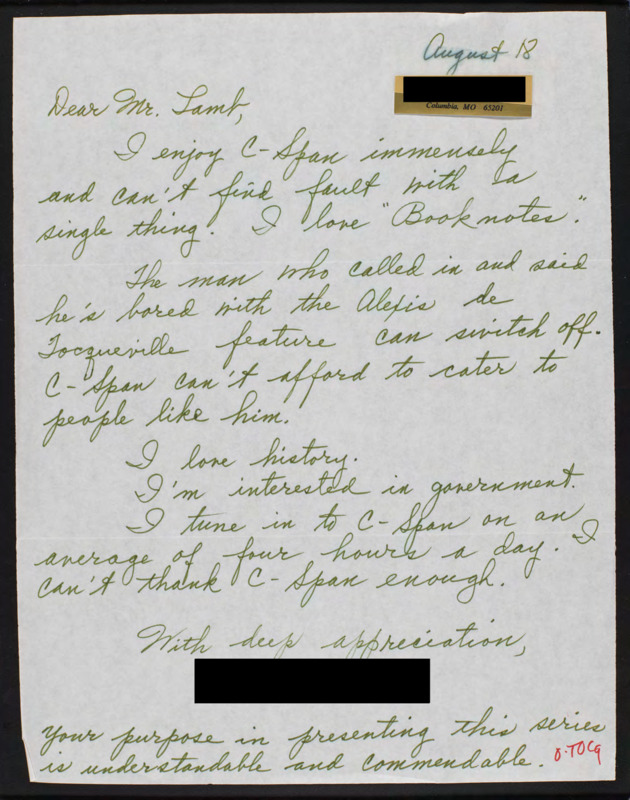 August 18
Columbia, MO 65201
Dear Mr. Lamb,
I enjoy C-Span immensely
and can't find fault with a
single thing. I love "Booknotes".
The man who called in and said
he's bored with the Alexis de
Tocqueville feature can switch off.
C-Span can't afford to cater to
people like him.
I love history.
I'm interested in government.
I tune in to C-Span on an
average of four hours a day. I
can't thank C-Span enough.
With deep appreciation,
Your purpose in presenting this series
is understandable and commendable.
O-TOCQ